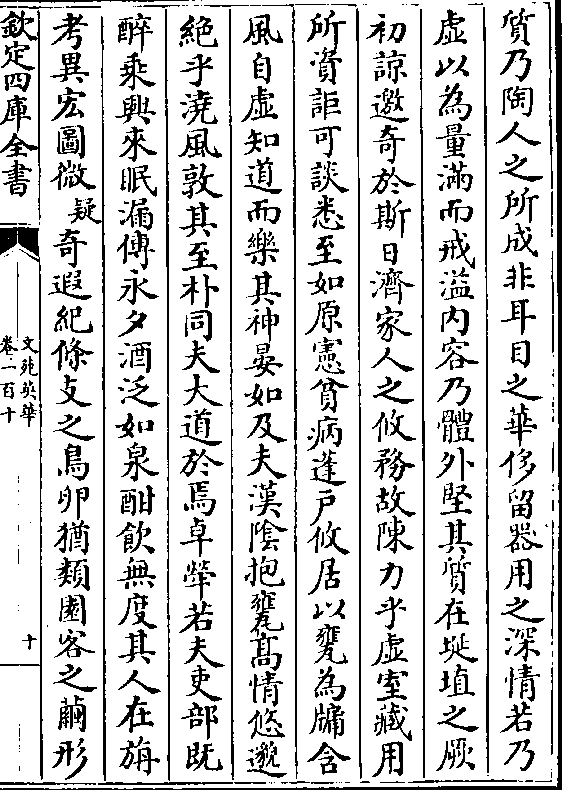 質乃陶人之所成非耳目之華侈留器用之深情若乃
虚以為量滿而戒溢内容乃體外堅其質在埏埴之厥
初諒邀奇於斯日濟家人之攸務故陳力乎虚室藏用
所資詎可談悉至如原憲貧病蓬戶攸居以甕為牖含
風自虚知道而樂其神晏如及夫漢陰抱甕高情悠邈
絶乎澆風敦其至朴同夫大道於焉卓犖若夫吏部既
醉乘興來眠漏傳永夕酒泛如泉酣飲無度其人在旃
考異宏圖微疑奇遐紀條支之鳥卵猶類園客之繭形
欽定四庫全書
文苑英華
卷一百十
十